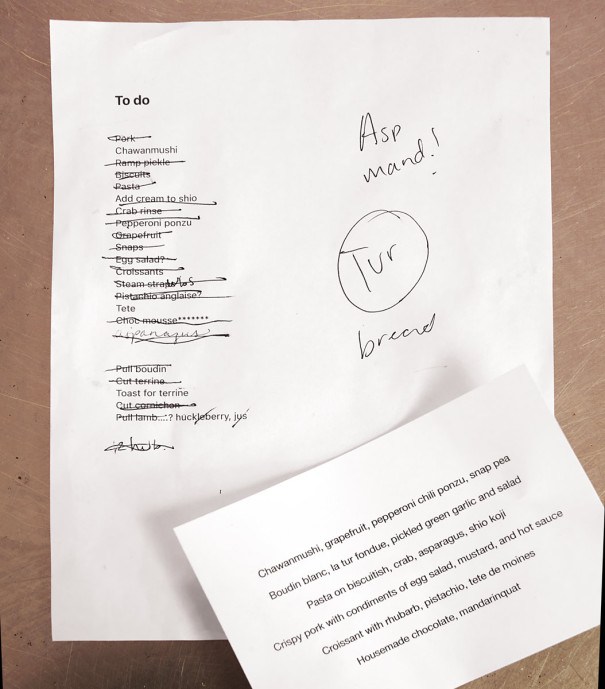 To do
Pork
Chawanmushi
Ramp pickle
Biscuits
Pasta
Add cream to shio
Crab rinse
Pepperoni ponzu
Grapefruit
Snaps
Egg salad?
Croissants
Steam stra
Pistachio anglaise?
Tete
Choc mousse*******
asparagus
Pull boudin
Cut terrine
Toast for terrine
Cut cornichon
Pull lamb....? huckleberry, jus
Asp
mand!
Tur
bread
Chawanmushi, grapefruit, pepperoni chili ponzu, snap pea
Boudin blanc, la tur fondue, pickled green garlic and salad
Pasta on biscuitish, crab, asparagus, shio koji
Crispy pork with condiments of egg salad, mustard, and hot sauce
Croissant with rhubarb, pistachio, tete de moines
Housemade chocolate, mandarinquat